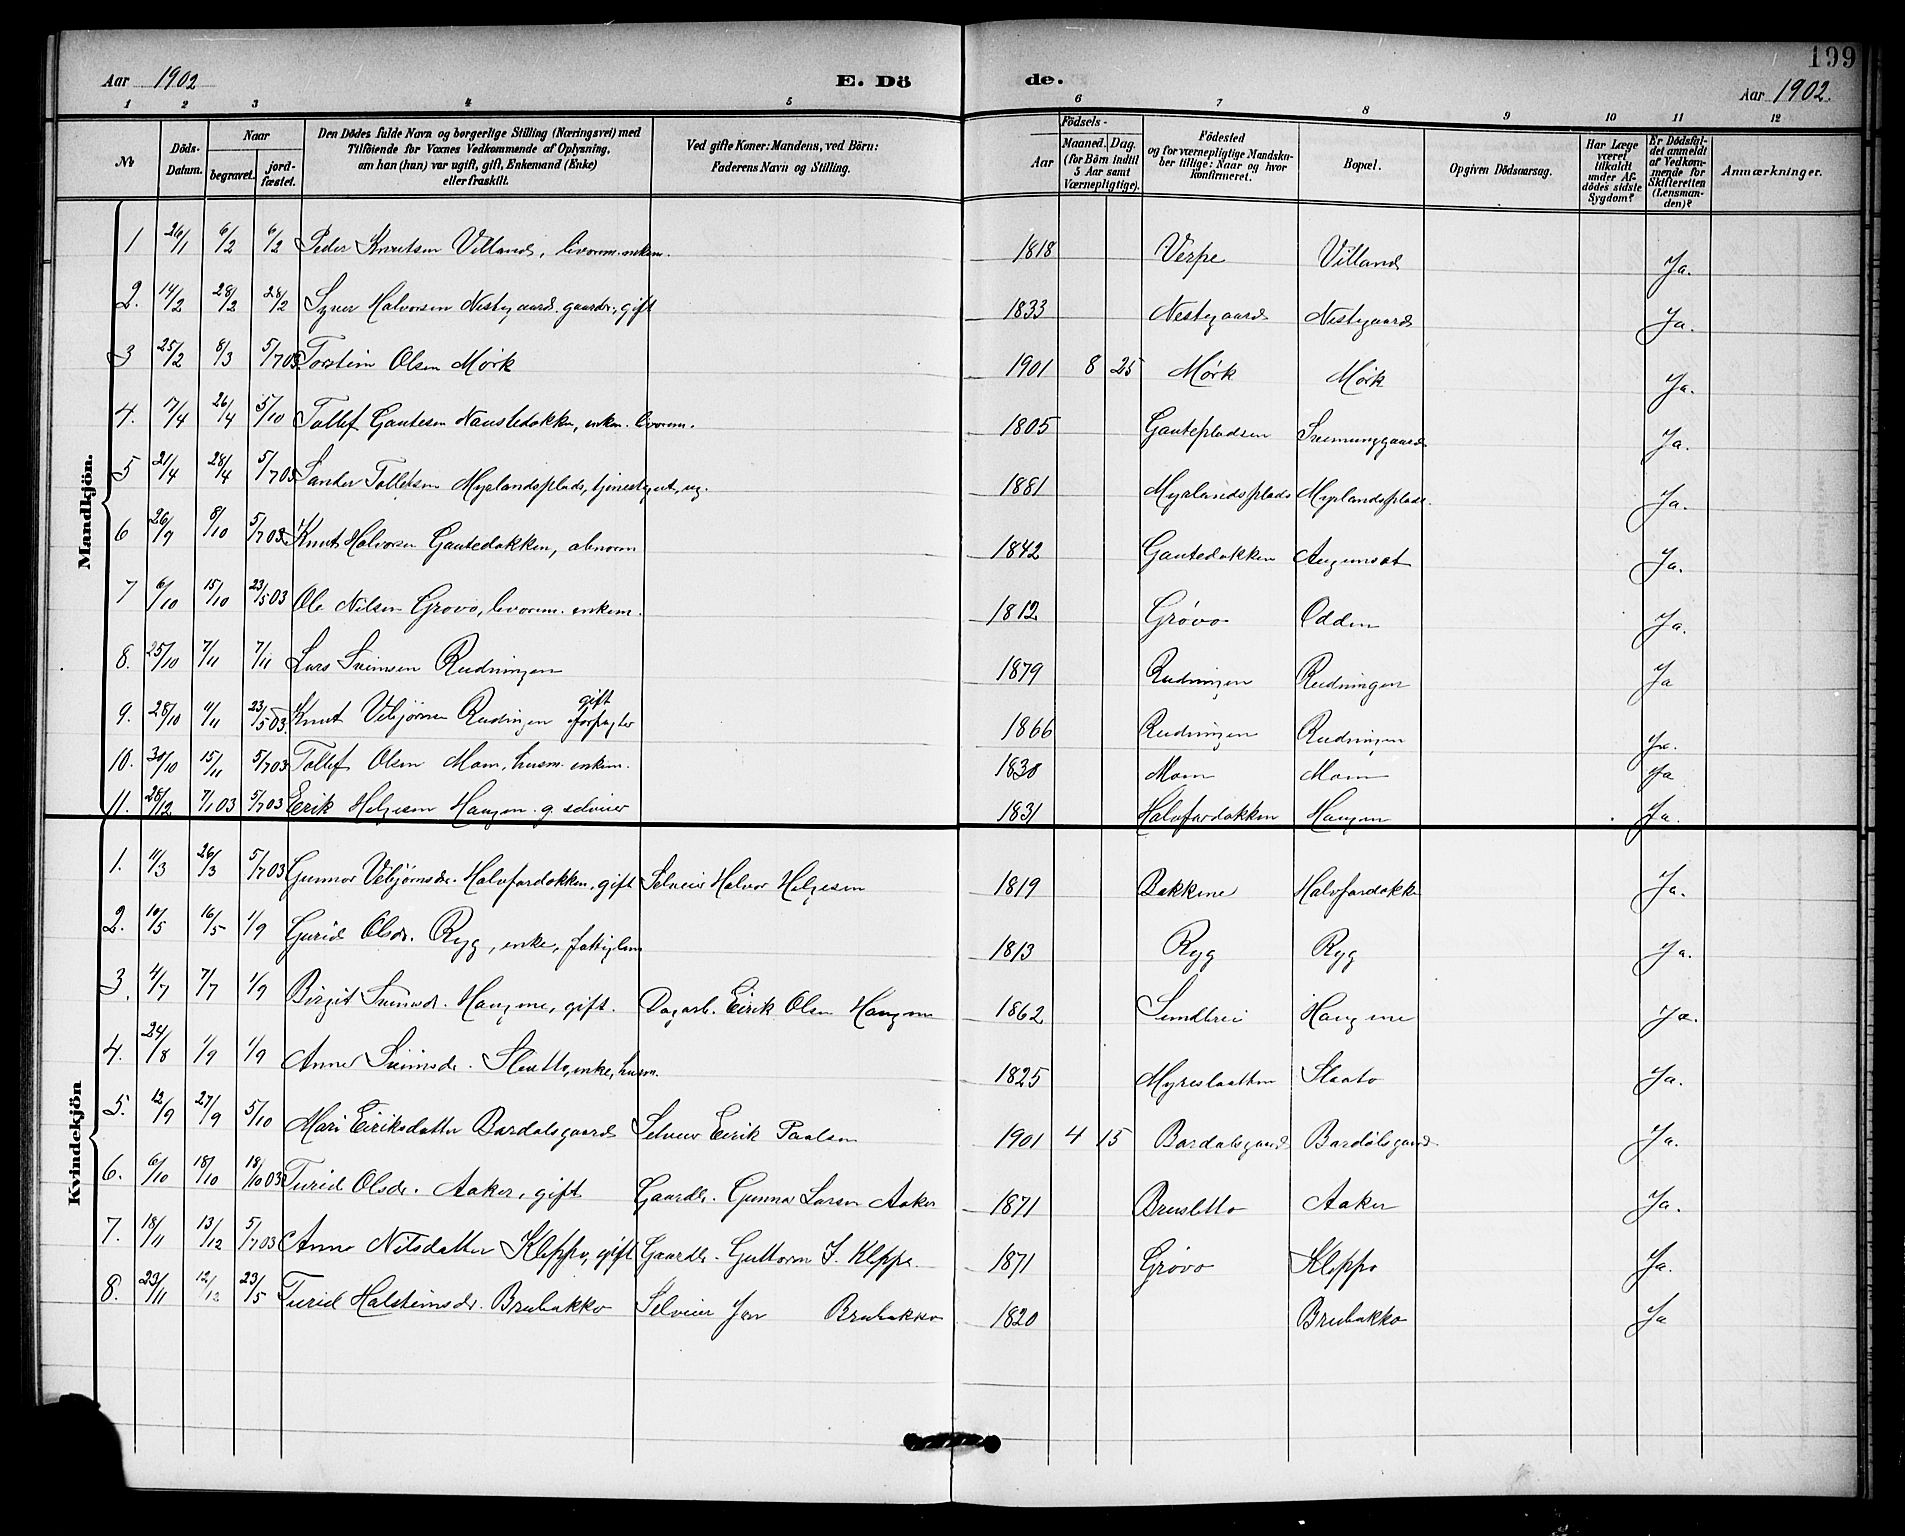 199
Aar 1902 E. Dö de. Aar 1902.
1 2 3 4 5 6 7 8 9 10 11 12
No
Döds-Datum.
Naar
begravet.
jord-fæstet.
Den Dödes fulde Navn og borgerlige Stilling (Næringsvei) med
Tilföiende for Voxnes Vedkommende af Oplysning,
om han (hun) var ugift, gift, Enkemand (Enke)
eller fraskilt.
Ved gifte Koner: Mandens, ved Börn:
Faderens Navn og Stilling.
Födsels-
Aar
Maaned. Dag.
(for Börn indtil
5 Aar samt
Værnepligtige).
Födested
og for værnepligtige Mandska-
ber tillige: Naar og hvor
konfirmeret.
Bopæl.
Opgiven Dödsaarsag.
Har Læge
været
tilkaldt
under Af-
dödes sidste
Sygdom?
Er Dödsfal-
det anmeldt
af Vedkom-
mende for
Skifteretten
(Lensman-
den)?
Anmærkninger.
Mandkjön.
1 26/1 6/2 6/2 Peder Knutsen Villand, livorem. enkem. 1818 Verpe Villand Ja.
2. 14/2 28/2 28/2 Syver Halvorsen Nestegaard. gaardbr., gift 1833 Nestegaard Nestegaard Ja.
3 25/2 8/3 5/7 03 Torstein Olsen Mørk 1901 8 25 Mørk Mørk Ja.
4. 17/4 26/4 5/10 Tollef Gautesen Naustedokken, enkem. livorem. 1805 Gautepladsen Svenunggaard Ja.
5 21/4 28/4 5/7 03 Sander Tollefsen Myrlandsplads, tjenestegut, ug. 1881 Myrlandsplads Myrlandsplads. Ja.
6 26/9 8/10 5/7 03. Knut Halvorsen Gautedokken, abnorm 1842 Gautedokken Augunset Ja.
7 6/10 15/10 23/5 03 Ole Nilsen Grøvo, livorem. enkem. 1812 Grøvo Odden Ja.
8. 25/10 7/11 7/11 Lars Sveinsen Rudningen 1879 Rudningen Rudningen Ja
9. 28/10 11/11 23/5 03. Knut Vebjørnsen Rudningen gift forpagter 1866 Rudningen Rudningen Ja.
10. 30/10 15/11 5/7 03 Tollef Olsen Moen, husm. enkem. 1830 Moen Moen Ja
11. 28/12 7/1 03 5/7 03 Eirik Helgesen Haugen. g. selveier 1831 Halvfardokken Haugen Ja.
Kvindekjön
1. 11/3 26/3 5/7 03 Gunnor Vebjørnsdr. Halvfardokken, gift Selveier Halvor Helgesen 1819 Bakkene Halvfardokke Ja.
2. 10/5 16/5 1/9 Gurid Olsdr. Ryg, enke, fattiglem 1813 Ryg Ryg Ja.
3. 4/7 7/7 1/9 Birgit Sveinsdr. Haugene, gift. Dagarb. Eirik Olsen Haugene 1862 Sundbrei Haugene Ja.
4. 24/8 1/9 1/9 Anne Sveinsdr. Slaatto, enke, husm. 1825 Myreslaatten Slaato Ja.
5. 12/9 27/9 5/10 Mari Eiriksdatter Bardølsgaard Selveier Eirik Paalsen 1901 4 15 Bardølsgaard Bardølsgaard Ja.
6. 6/10 18/10 18/10 03 Turid Olsdr. Aaker, gift Gaardbr. Gunnar Larsen Aaker 1871 Brusletto Aaker Ja.
7. 18/11 13/12 5/7 03 Anne Nilsdatter Kleppo, gift Gaardbr. Guttorm T. Kleppe 1871 Grøvo Kleppo Ja.
8. 23/11 12/12 23/5 Turid Halsteinsdr. Brubakko Selveier Jon Brubakko 1820 Brubakko Ja